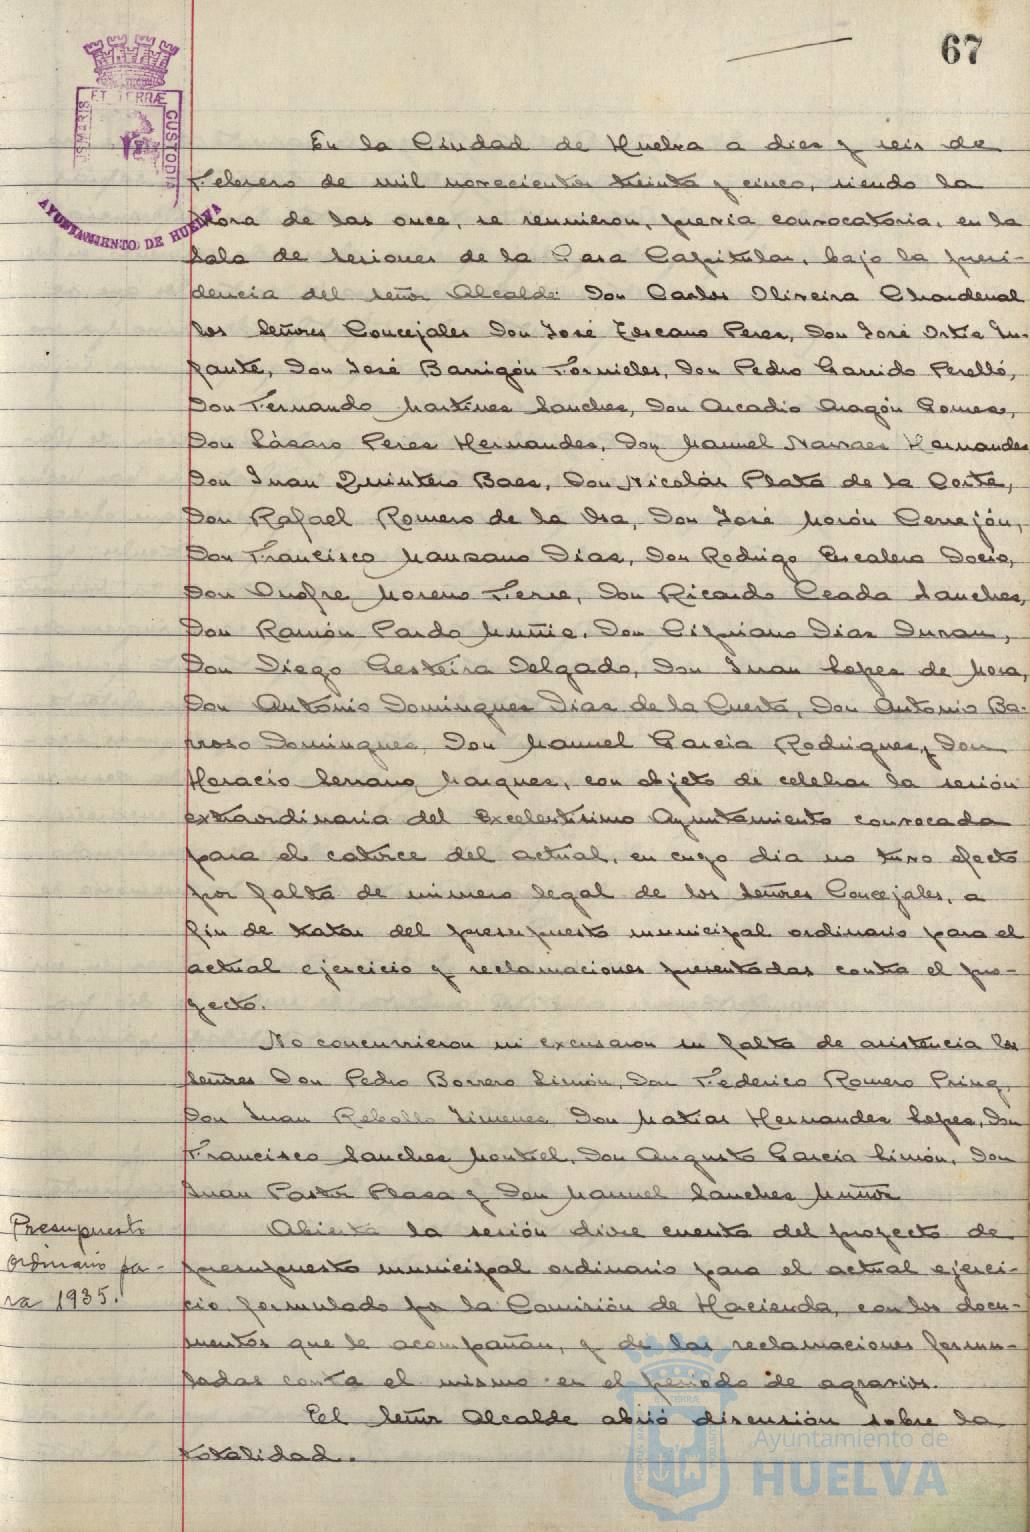 67
ET TERRÆ
CUSTODIA
AYUNTAMIENTO DE HUELVA
En la Ciudad de Huelva a diez y seis de
Febrero de mil novecientos treinta y cinco, siendo la
hora de las once, se reunieron, previa convocatoria, en la
Sala de Sesiones de la Casa Capitular, bajo la presi-
dencia del Señor Alcalde Don Carlos Oliveira Chardenal
los Señores Concejales Don José Toscano Perez, Don José Ortiz In-
fante, Don José Barrigón Fornieles, Don Pedro Garrido Perelló,
Don Fernando Martinez Sanchez, Don Arcadio Aragón Gomez,
Don Lázaro Perez Hernandez, Don Manuel Narvaez Hernandez
Don Juan Quintero Baez, Don Nicolás Plata de la Corte,
Don Rafael Romero de la Osa, Don José Morón Cerrejón,
Don Francisco Manzano Diaz, Don Rodrigo Escalera Docio,
Don Onofre Moreno Ferre, Don Ricardo Ceada Sanchez,
Don Ramón Pardo Muñiz, Don Cipriano Diaz Duran,
Don Diego Gesteira Delgado, Don Juan Lopez de Mora,
Don António Dominguez Diaz de la Cuesta, Don Antonio Ba-
rroso Dominguez, Don Manuel Garcia Rodriguez, y Don
Horacio Serrano Marquez, con objeto de celebrar la sesión
extraordinaria del Excelentisimo Ayuntamiento convocada
para el catorce del actual, en cuyo dia no tuvo efecto
por falta de número legal de los Señores Concejales, a
fin de tratar del presupuesto municipal ordinario para el
actual ejercicio y reclamaciones presentadas contra el pro-
yecto.
No concurrieron ni excusaron su falta de asistencia los
Señores Don Pedro Borrero Limón, Don Federico Romero Pring,
Don Juan Rebollo Jimenez Don Matias Hernandez Lopez, Don
Francisco Sanchez Montiel, Don Augusto García Limón, Don
Juan Pastor Plaza y Don Manuel Sanchez Muñoz
Presupuesto
ordinario pa-
ra 1935.
Abierta la sesión dióse cuenta del proyecto de
presupuesto municipal ordinario para el actual ejerci-
cio, formulado por la Comisión de Hacienda, con los docu-
mentos que le acompañan, y de las reclamaciones formu-
ladas contra el mismo en el periodo de agravios.
El Señor Alcalde abrió discusión sobre la
totalidad.
Ayuntamiento de
HUELVA